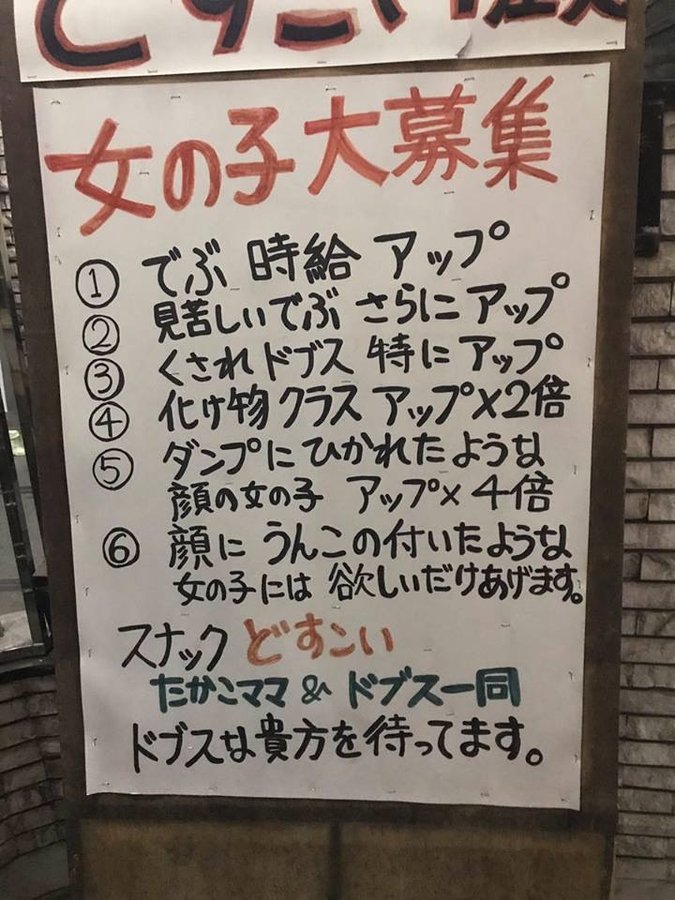 どすこい
女の子大募集
① でぶ 時給 アップ
② 見苦しいでぶ さらにアップ
③ くされドブス 特にアップ
④ 化け物クラス アップ×2倍
⑤ ダンプにひかれたような
顔の女の子 アップ×4倍
⑥ 顔に うんこの付いたような
女の子には 欲しいだけあげます。
スナック どすこい
たかこママ & ドブス一同
ドブスな貴方を待ってます。